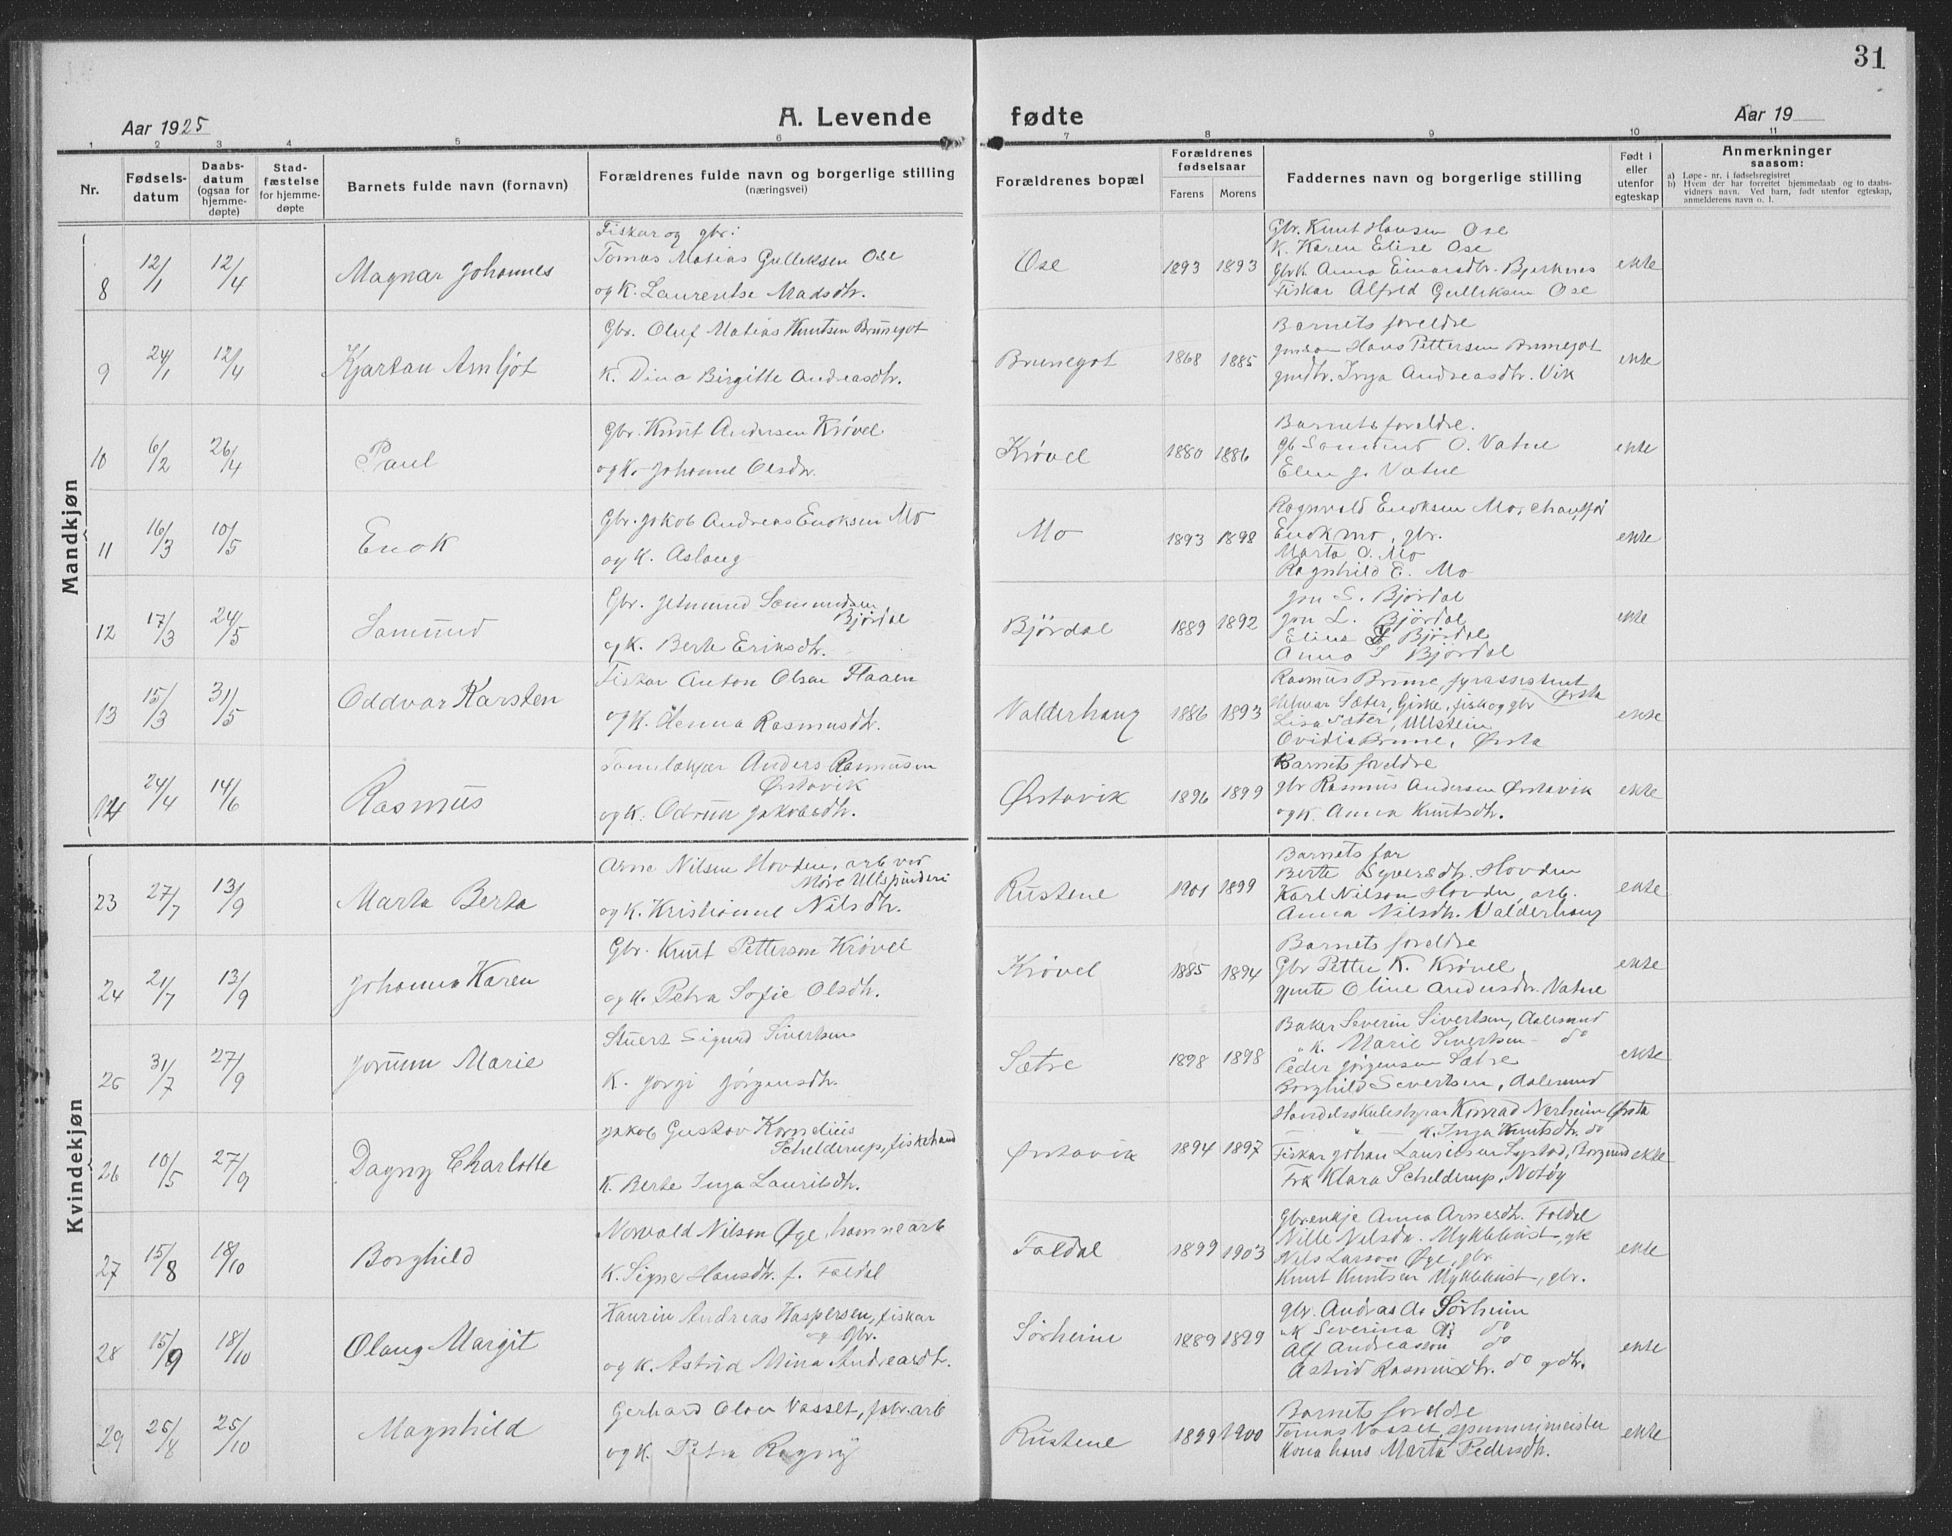 31
Aar 1925
A. Levende fødte
Aar 19
1 2 3 4 5 6 7 8 9 10 11
Nr.
Fødsels-
datum
Daabs-
datum
(ogsaa for
hjemme-
døpte)
Stad-
fæstelse
for hjemme-
døpte
Barnets fulde navn (fornavn)
Forældrenes fulde navn og borgerlige stilling
(næringsvei)
Forældrenes bopæl
Forældrenes
fødselsaar
Farens Morens
Faddernes navn og borgerlige stilling
Født i
eller
utenfor
egteskap
Anmerkninger
saasom:
a) Løpe-nr. i fødselsregistret
b) Hvem der har forrettet hjemmedaab og to daabs-
vidners navn. Ved barn, født utenfor egteskap,
anmelderens navn o. l.
Mandkjøn
8 12/1 12/4 Magnar Johannes
Fiskar og gbr:
Tomas Matias Gulleksen Ose
og K. Laurentse Madsdtr.
Ose 1893 1893
Gbr. Knut Hansen Ose
K. Karen Elise Ose
gbrk. Anna Einarsdtr. Bjerknes
Fiskar Alfred Gulleksen Ose
ekte
9 24/1 12/4 Kjartan Arnljot
Gbr. Oluf Matias Knutsen Brunegot
K. Dina Birgitte Andreasdtr.
Brunegot 1868 1885
Barnets foreldre
Hans Pettersen Brunegot
Inga Andreasdtr. Vik
ekte
10 6/2 26/4 Paul
Gbr. Knut Andersen Krøvel
og K. Johanne Olsdtr.
Krøvel 1880 1886
Barnets foreldre.
gb. Samund O. Vatne
Elen J. Vatne
ekte
11 16/3 10/5 Enok
Gbr. Jakob Andreas Enoksen Mo
og K. Aslaug
Mo 1893 1898
Ragnvald Enoksen Mo, chauffør
Enok Mo, gbr.
Marta O. Mo
Ragnhild E. Mo
ekte
12 17/3 24/5 Samund
Gbr. Jetmund Samundsen
Bjørdal
og K. Berte Eriksdtr.
Bjørdal 1889 1892
Jon S. Bjørdal
Jon L. Bjørdal
Bjørdal
Anna S Bjørdal
ekte
13 15/3 31/5 Oddvar Karsten
Fiskar Anton Olsen Flaaen
og K. Henna Rasmusdtr.
Valderhaug 1886 1893
Rasmus Brune, fyrassistent
Hilmar Sæter, Giske, fisk og gbr Ørsta
Lisa Sæter, Ullstein
Ovidia Brune, Ørsta
ekte
14 24/4 14/6 Rasmus
Anders Rasmusen
Ørstavik
og K. Odrun Jakobsdtr.
Ørstavik 1896 1899
Barnets foreldre
gbr Rasmus Andersen Ørstavik
og K. Anna Knutsdtr.
ekte
Kvindekjøn
23 27/7 13/9 Marta Berta
Arne Nilsen Hovden, arb. ved
Møre Ullspinderi
og K. Kristianne Nilsdtr.
Rustene 1901 1899
Barnets far
Berte Syversdtr. Hovden
Karl Nilsen Hovden, arb.
Anna Nilsdtr. Valderhaug
ekte
24 21/7 13/9 Johanna Karen
Gbr. Knut Petterson Krøvel
og K. Petra Sofie Olsdtr.
Krøvel 1885 1894
Barnets foreldre
Gbr Petter K. Krøvel
Oline Andersdtr. Vatne
ekte
31/7 27/9 Jorunn Marie
Stuert Sigurd Sivertsen
K. Jorgi Jørgensdtr.
Sætre 1898 1898
Baker Severin Sivertsen, Aalesund
" K. Marie Sivertsen - do
Peder Jørgensen Sætre
Borghild Sivertsen, Aalesund
ekte
26 10/5 27/9 Dagny Charlotte
Jakob Gustav Kornelius
Schelderup, fiskehand
K. Berte Inga Lauritsdtr.
Ørstavik 1894 1897
Handelsskulestyrar Konrad Nerheim Ørsta
— " — K. Inga Knutsdtr. do
Fiskar Johan Lauritsen Systad, Borgund
Frk Klara Schelderup, Notøy
ekte
27 15/8 18/10 Borghild
Norvald Nilsen Øye, havnearb
K. Signe Hansdtr. f. Foldal
Foldal 1899 1903
Gbrenkje Anna Arnesdtr. Foldal
Nille Nilsdtr. Myklebust, gk
Nils Larsen Øye, gbr.
Knut Knutsen Myklebust, gbr.
ekte
28 15/9 18/10 Olaug Margit
Kaurin Andreas Kaspersen, fiskar
og gbr.
og K. Astrid Mina Andreasdtr.
Sørheim 1889 1899
gbr. Andreas A. Sørheim
K Severina do
Alf Andreassen do
Astrid Rasmusdtr. do gdtr.
ekte
29 26/8 25/10 Magnhild
Gerhard Olav Vasset, fabr.arb
og K. Petra Ragny
Rustene 1899 1900
Barnets foreldre
Tomas Vasset, spinnerimeister
Kona hans Marta Pedersdtr.
ekte